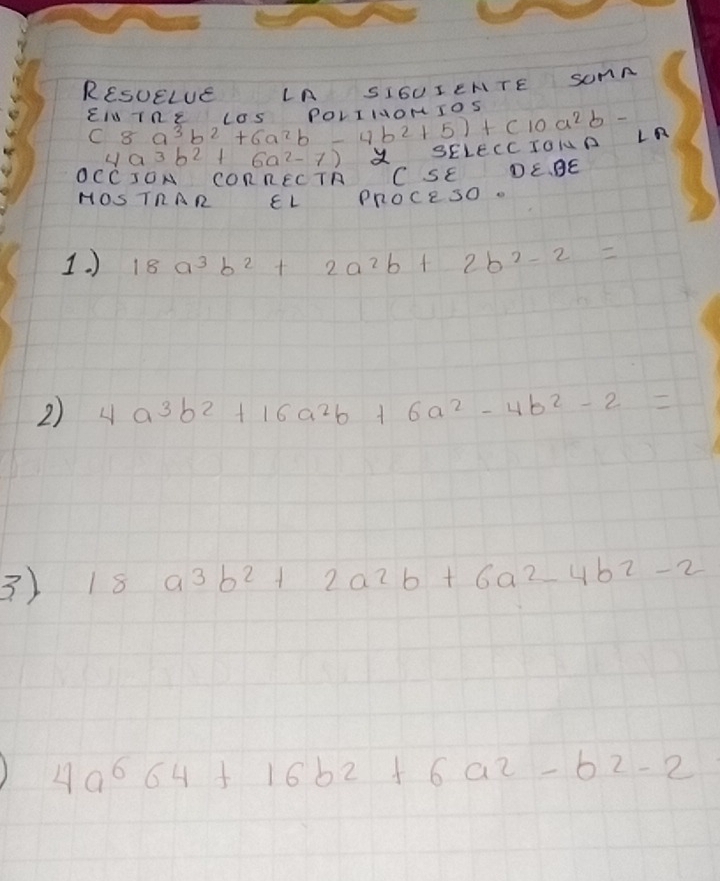 RESUELUE LA SIGUIENTE SUMA
ENTRE LOS POLINOMIOS
( 8 a³b² + 6a²b - 4b² + 5) + (10 a²b -
4a³b² + 6a² - 7) y SELECCIONA LA
OCCION CORRECTA ( SE DEBE
MOSTRAR EL PROCESO .
1.) 18 a³b² + 2a²b + 2b² - 2 =
2) 4a³b² + 16a²b + 6a² - 4b² - 2 =
3) 18 a³b² + 2a²b + 6a² - 4b² - 2
) 4a⁶ 64 + 16b² + 6a² - b² - 2